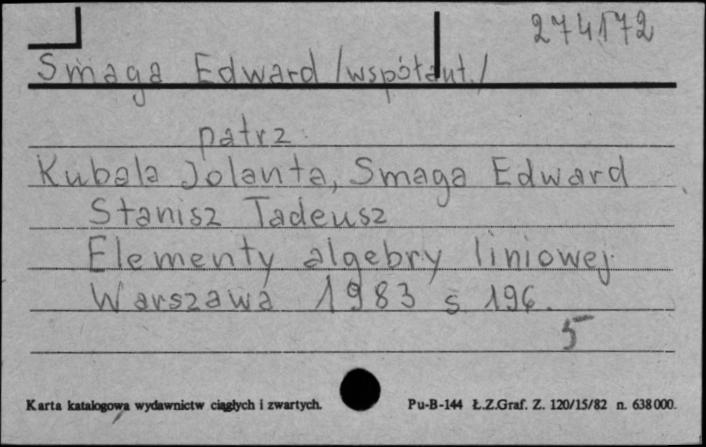 274172
Smaga Edward /współaut./
patrz:
Kubala Jolanta, Smaga Edward
Stanisz Tadeusz
Elementy algebry liniowej.
Warszawa 1983 s. 196.
5
Karta katalogowa wydawnictw ciągłych i zwartych. Pu-B-144 Ł.Z.Graf. Z. 120/15/82 n. 638000.